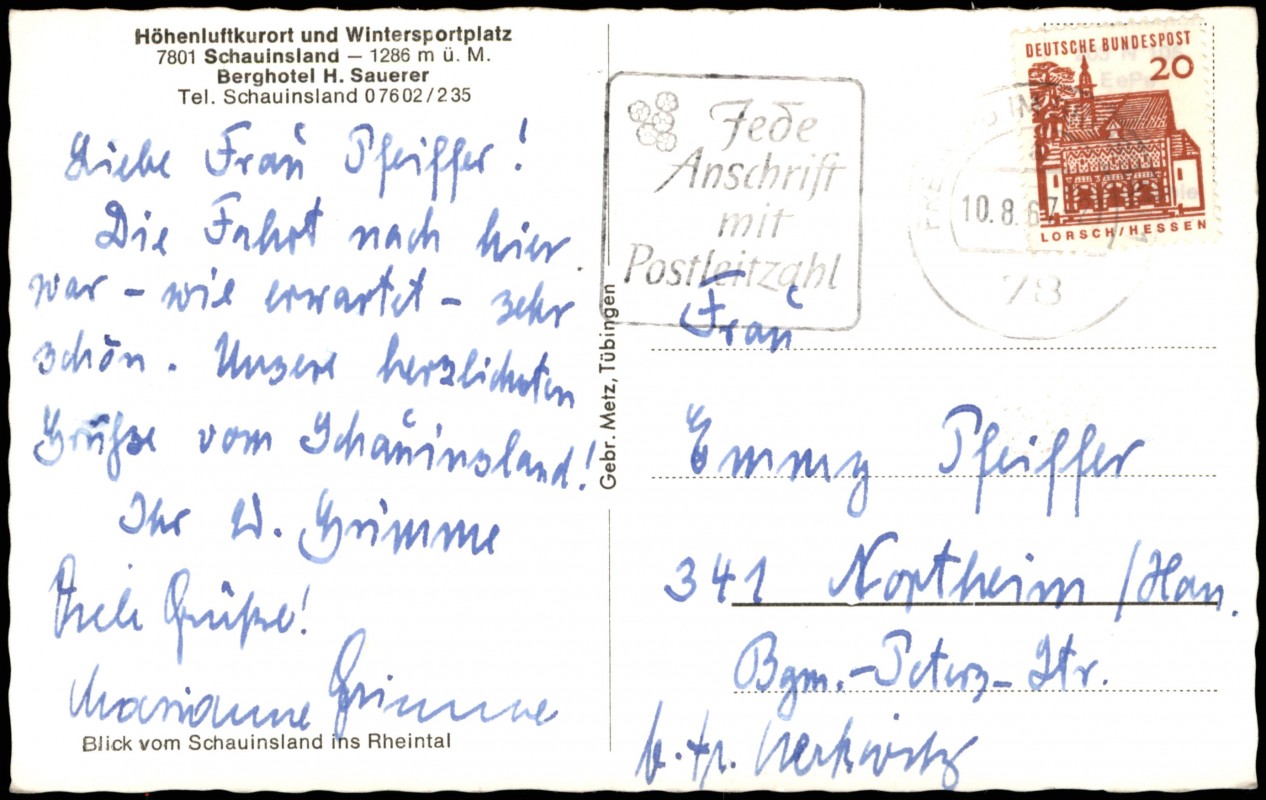 Höhenluftkurort und Wintersportplatz
7801 Schauinsland – 1286 m ü. M.
Berghotel H. Sauerer
Tel. Schauinsland 07602/235
Liebe Frau Pfeiffer!
Die Fahrt nach hier
war – wie erwartet – sehr
schön. Unsere herzlichsten
Grüße vom Schauinsland!
Ihr W. Grimme
Viele Grüße!
Marianne Grimme
Blick vom Schauinsland ins Rheintal
Gebr. Metz, Tübingen
Jede
Anschrift
mit
Postleitzahl
10.8.67
78
DEUTSCHE BUNDESPOST
20
LORSCH/HESSEN
Frau
Emmy Pfeiffer
341 Northeim /Han.
Bgm.-Peters-Str.
b. Fr.